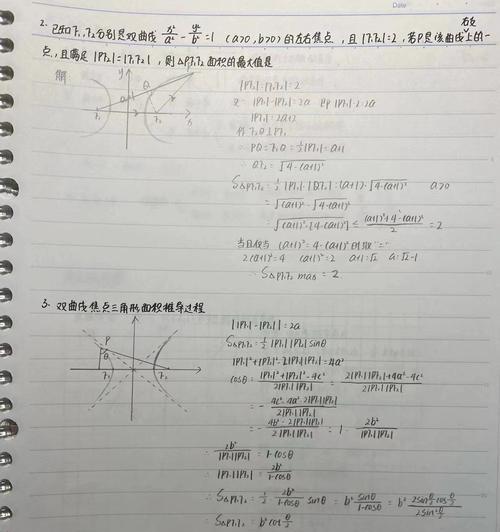 Date
2. 已知F₁,F₂分别是双曲线 x²/a² - y²/b² = 1 (a>0, b>0) 的左右焦点, 且|F₁F₂|=2, 若P是该曲线右支上的一
点, 且满足 |PF₂|=|F₁F₂|, 则△PF₁F₂ 面积的最大值是
|PF₂|=|F₁F₂|=2
|PF₁|-|PF₂|=2a 即 |PF₁|-2=2a
|PF₁|=2a+2
PQ=F₁Q=½|PF₁|=a+1
QF₂=√4-(a+1)²
S△PF₁F₂=½|PF₁|·|QF₂|=(a+1)·√4-(a+1)² a>0
=√(a+1)²·√4-(a+1)²
=√(a+1)²·[4-(a+1)²] ≤ (a+1)²+4-(a+1)²/2 = 2
当且仅当 (a+1)²=4-(a+1)² 时取"="
2(a+1)²=4 (a+1)²=2 a+1=√2 a=√2-1
∴S△PF₁F₂ max=2
3. 双曲线焦点三角形面积推导过程
||PF₁|-|PF₂||=2a
S△PF₁F₂=½|PF₁||PF₂|sinθ
|PF₁|²+|PF₂|²-2|PF₁||PF₂|=4a²
cosθ=|PF₁|²+|PF₂|²-4c²/2|PF₁||PF₂| = 2|PF₁||PF₂|+4a²-4c²/2|PF₁||PF₂|
=-4c²-4a²-2|PF₁||PF₂|/2|PF₁||PF₂|
=-4b²-2|PF₁||PF₂|/2|PF₁||PF₂| = 1-2b²/|PF₁||PF₂|
∴ 2b²/|PF₁||PF₂| = 1-cosθ
∴|PF₁||PF₂|=2b²/1-cosθ
∴S△PF₁F₂=½·2b²/1-cosθ·sinθ=b²sinθ/1-cosθ=b²2sinθ/2cosθ/2/2sin²θ/2
∴S△PF₁F₂=b²cotθ/2